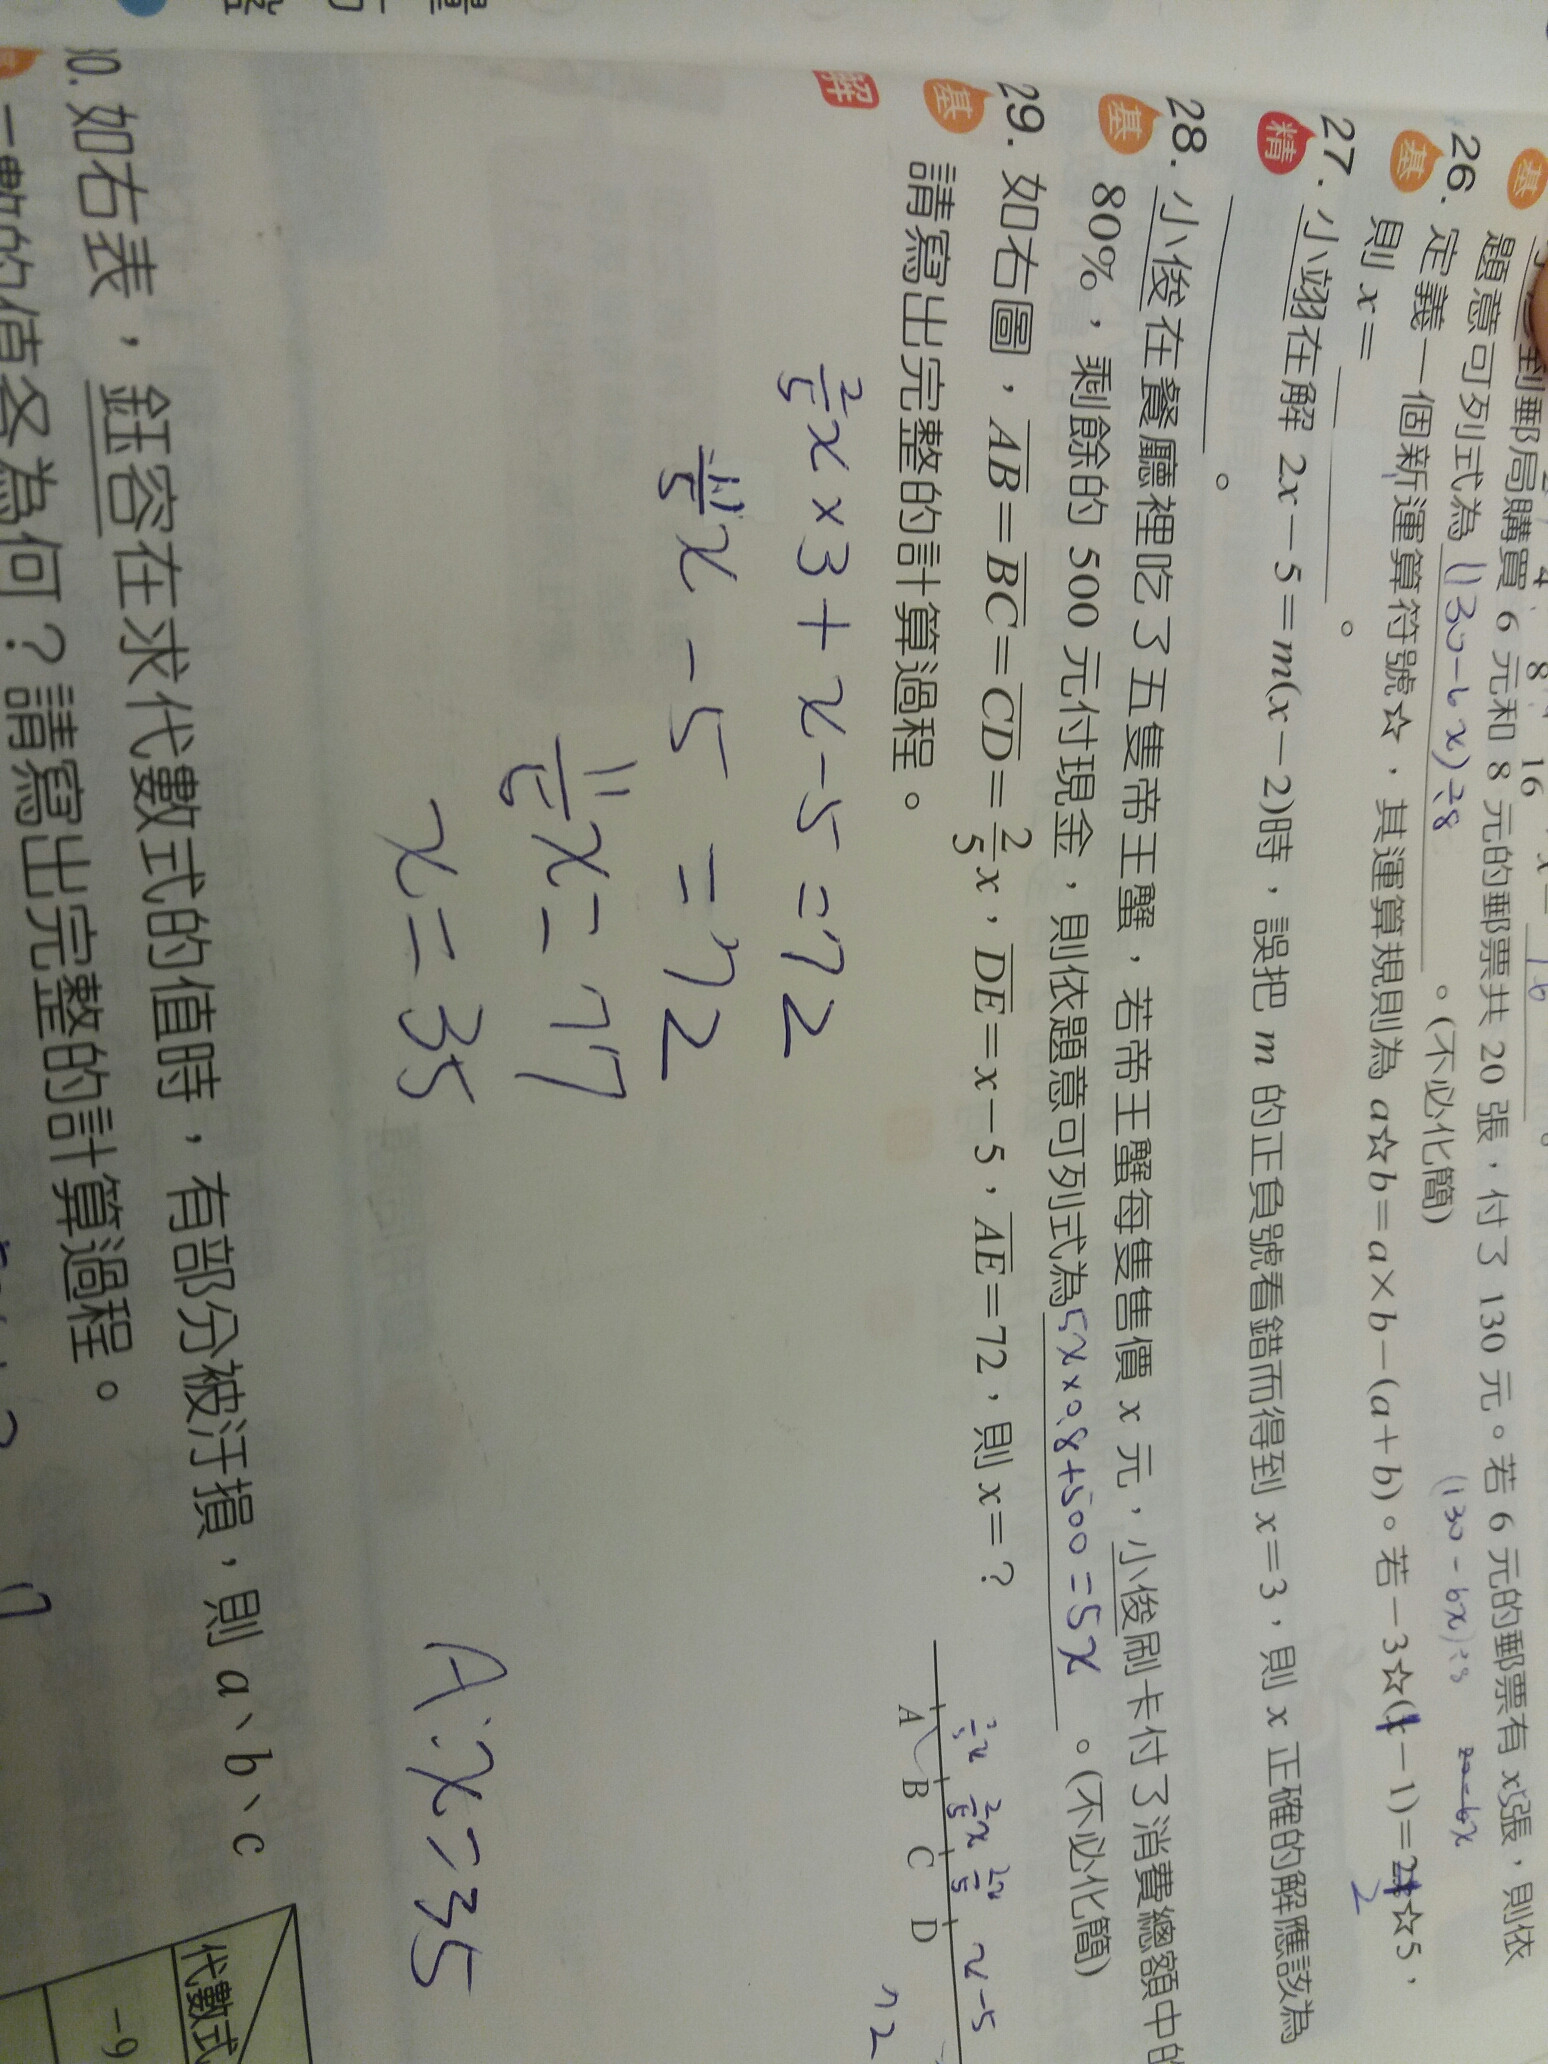 到郵局購買 6 元和 8 元的郵票共 20 張,付了 130 元。若 6 元的郵票有 x 張,則依
基 題意可列式為 (130-6x)÷8 。(不必化簡)
(130-6x)÷8
26. 定義一個新運算符號☆,其運算規則為 a☆b=a×b-(a+b)。若-3☆(x-1)=2☆5,
2
基 則 x= 。
27. 小翊在解 2x-5=m(x-2)時,誤把 m 的正負號看錯而得到 x=3,則 x 正確的解應該為
精 。
28. 小俊在餐廳裡吃了五隻帝王蟹,若帝王蟹每隻售價 x 元,小俊刷卡付了消費總額中的
基 80%,剩餘的 500 元付現金,則依題意可列式為 5x×0.8+500=5x 。(不必化簡)
29. 如右圖,AB=BC=CD=2/5x,DE=x-5,AE=72,則 x=?
基 請寫出完整的計算過程。
2/5x 2/5x 2x/5 x-5
A B C D
72
解
2/5x×3+x-5=72
11/5x-5=72
11/5x=77
x=35
A:x=35
30. 如右表,鈺容在求代數式的值時,有部分被汙損,則 a、b、c
一數的值各為何?請寫出完整的計算過程。
代數式
-9